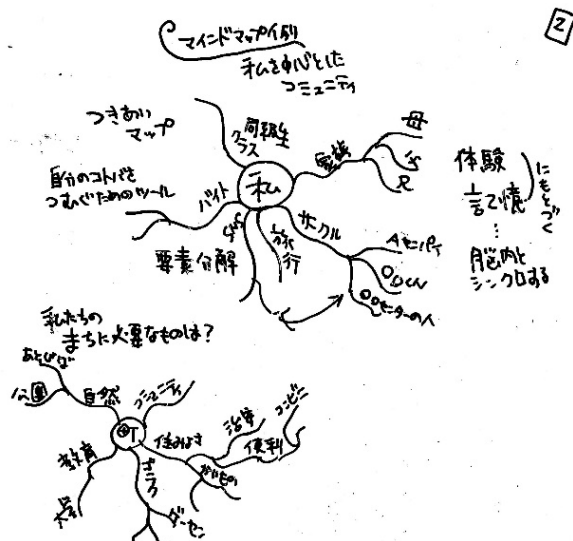 2
マインドマップ例
私を中心とした
コミュニティ
つきあい
マップ
自分のコトバを
つむぐためのツール
要素分解
私
同級生
クラス
家族
母
父
バイト
旅行
サークル
Aセンパイ
〇〇くん
〇〇センターの人
体験
記憶
…
にもとづく
脳内と
シンクロする
私たちの
まちに必要なものは?
あそびば
公園
自然
コミュニティ
教育
住みよさ
治安
便利
コンビニ